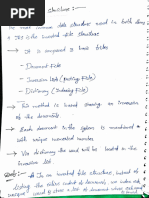 Structure :-
The most common data structure used in both
→ It is the inverted file structure
→ It is composed of three files
- Document File
- Inversion list (posting file)
- Dictionary (Indexing File)
→ This method is used storing an inversion of the documents
→ Each document in the system is mentioned with unique numerical number
→ Via dictionary the word will be located in the inversion list
:- In an inverted file structure, instead of
listing the entire content of documents, we index each
word & store a list of documents where